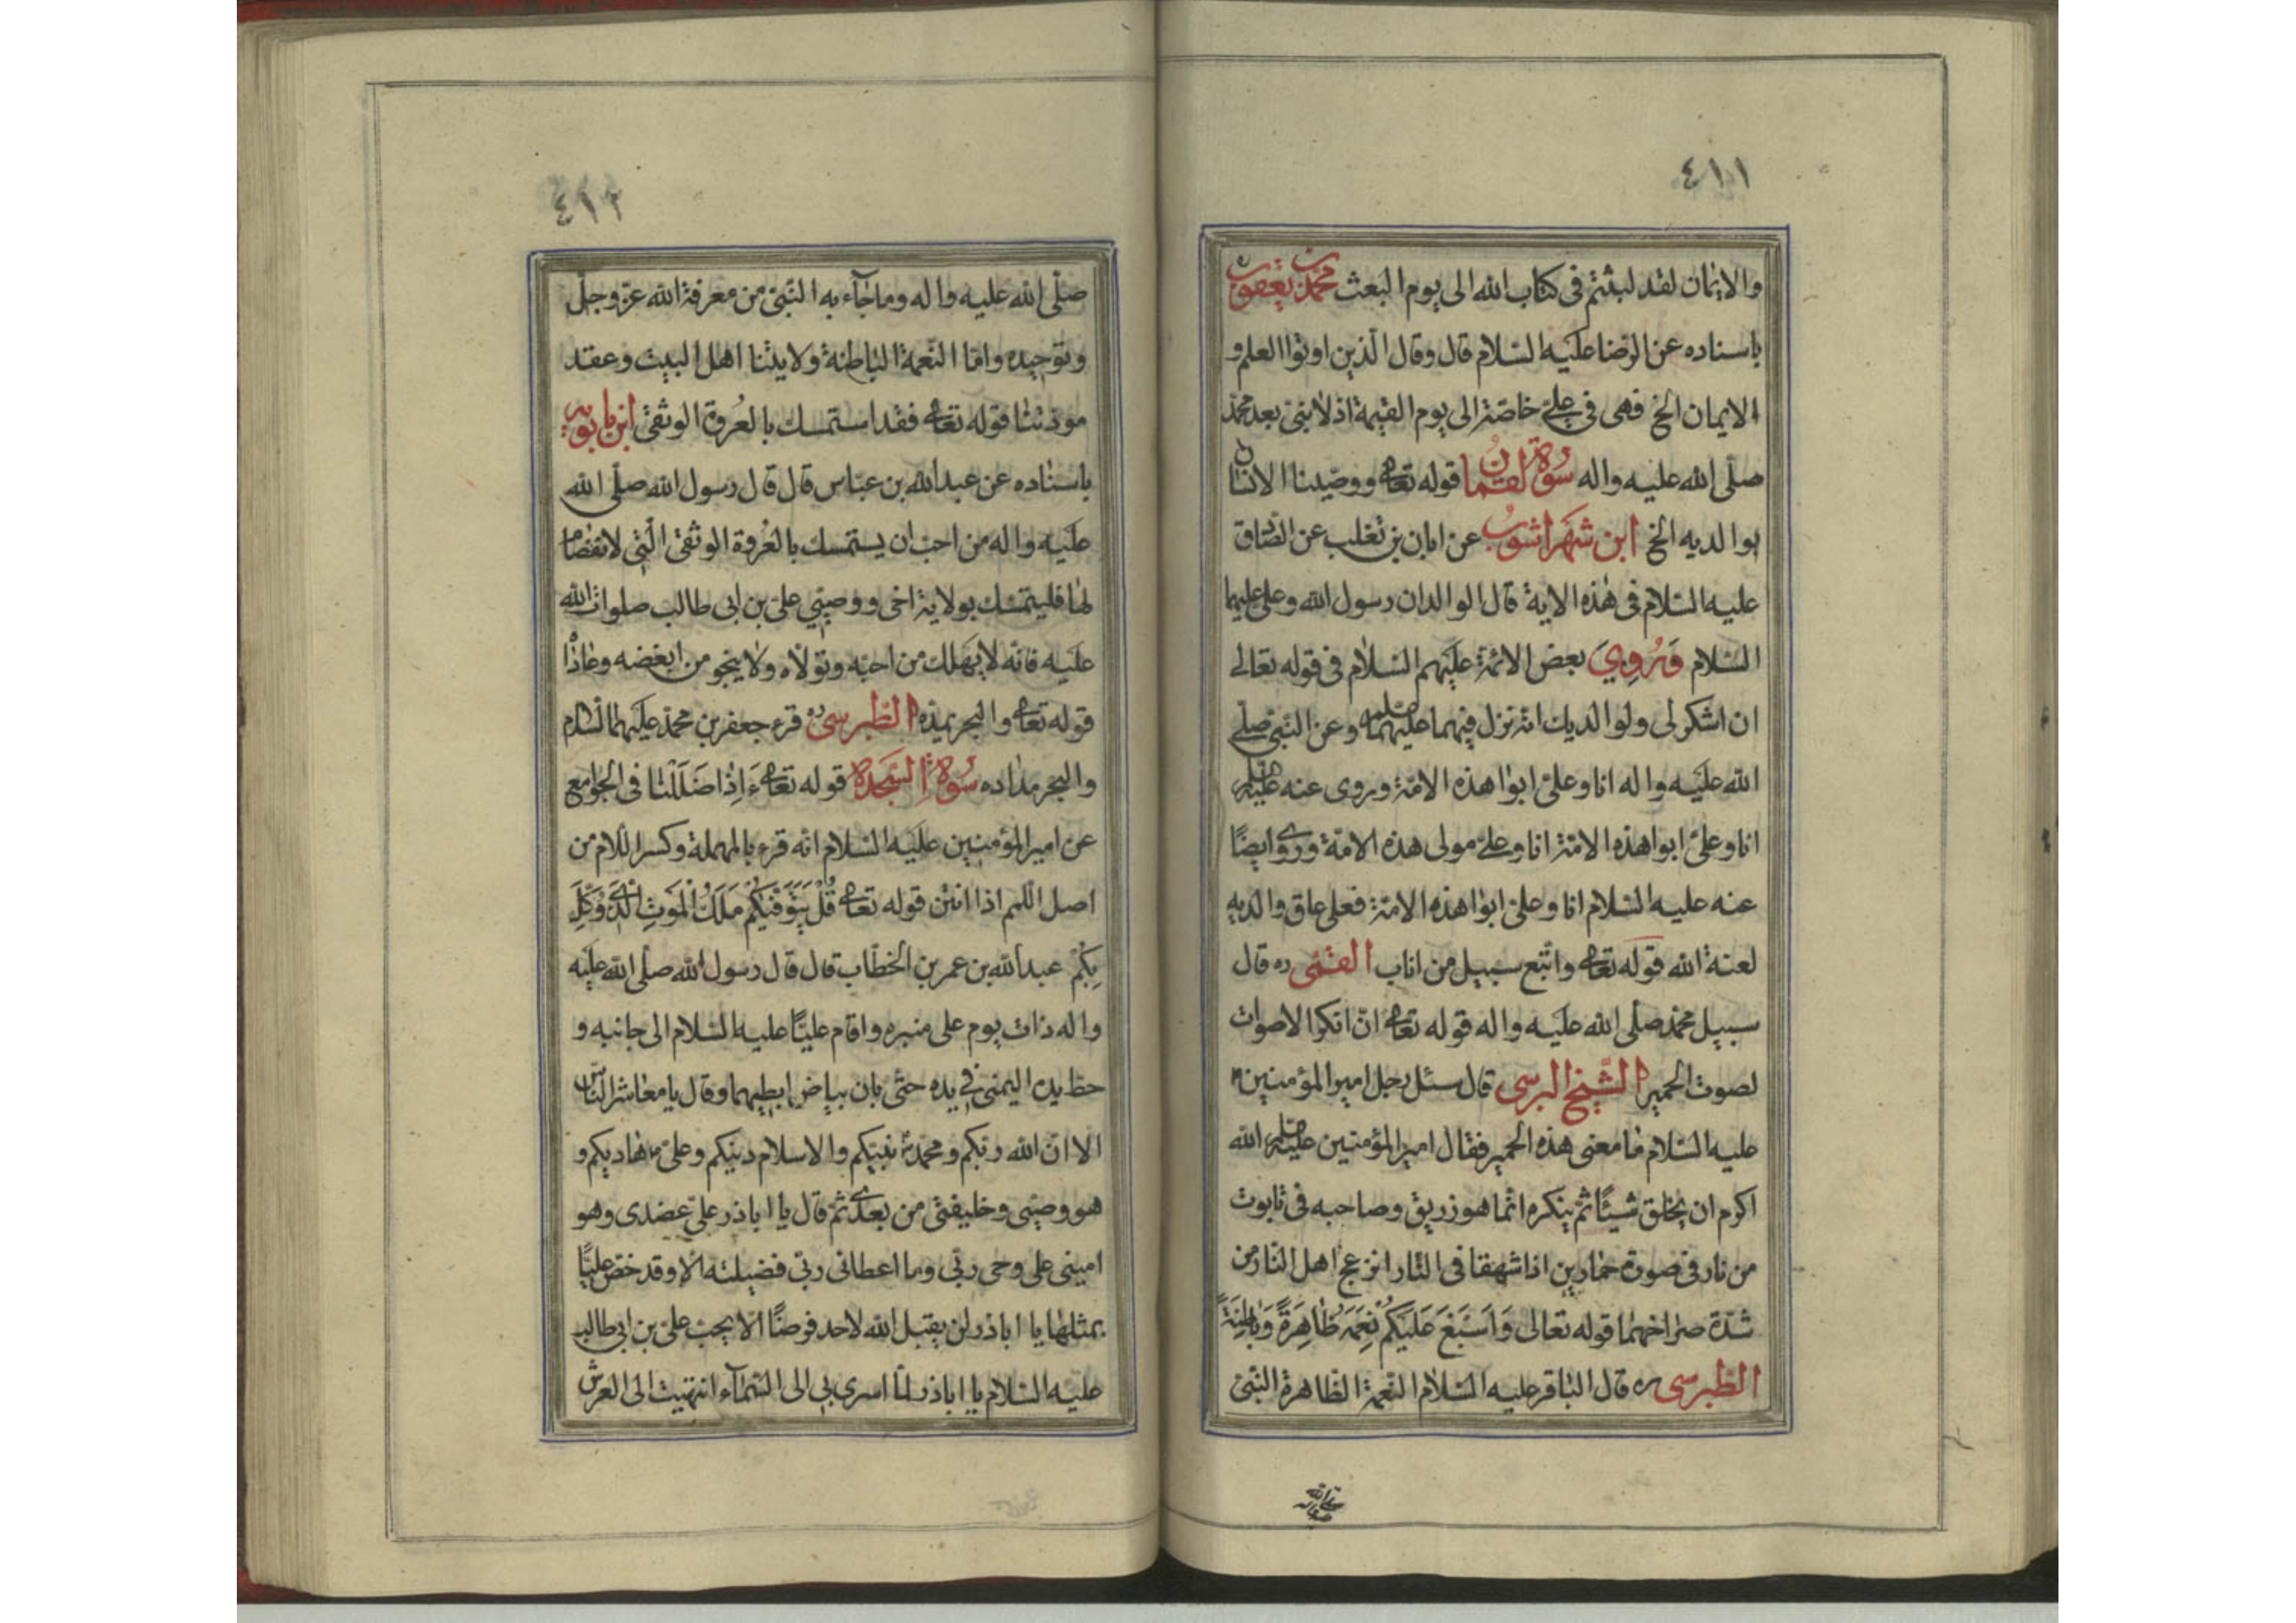 ٤١١
والايمان لقد لبثتم فى كتاب الله الى يوم البعث محمد بن يعقوب
باسناده عن الرضا عليه السلام قال وقال الذين اوتوا العلم و
الايمان الخ فهى فى على خاصة الى يوم القيمة اذ لا نبى بعد محمد
صلى الله عليه واله سورة لقمان قوله تعالى ووصينا الانسان
بوالديه الخ ابن شهراشوب عن ابان بن تغلب عن الصادق
عليه السلام فى هذه الاية قال الوالدان رسول الله وعلى عليهما
السلام وروى بعض الائمة عليهم السلام فى قوله تعالى
ان اشكر لى ولوالديك انه نزل فيهما عليهما وعن النبى صلى
الله عليه واله انا وعلى ابوا هذه الامة وروى عنه
انا وعلى ابوا هذه الامة انا وعلى مولى هذه الامة وروى ايضا
عنه عليه السلام انا وعلى ابوا هذه الامة فعلى عاق والديه
لعنة الله قوله تعالى واتبع سبيل من اناب القمى ره قال
سبيل محمد صلى الله عليه واله قوله تعالى ان انكر الاصوات
لصوت الحمير الشيخ البرسى قال سئل رجل امير المؤمنين
عليه السلام ما معنى هذه الحمير فقال امير المؤمنين الله
اكرم ان يخلق شيئا ثم ينكره انما هو زريق وصاحبه فى تابوت
من نار فى صورة حمارين اذا شهقا فى النار انزعج اهل النار من
شدة صراخهما قوله تعالى وَاَسْبَغَ عَلَيْكُمْ نِعَمَهُ ظَاهِرَةً وَبَاطِنَةً
الطبرسى ره قال الباقر عليه السلام النعمة الظاهرة النبى
٤١٢
صلى الله عليه واله وما جاء به النبى من معرفة الله عز وجل
وتوحيده واما النعمة الباطنة ولايتنا اهل البيت وعقد
مودتنا قوله تعالى فقد استمسك بالعروة الوثقى ابن بابويه
باسناده عن عبد الله بن عباس قال قال رسول الله صلى الله
عليه واله من احب ان يستمسك بالعروة الوثقى التى لا انفصام
لها فليتمسك بولاية اخى ووصيي على بن ابى طالب صلوات الله
عليه فانه لا يهلك من احبه وتولاه ولا ينجو من ابغضه وعاداه
قوله تعالى والبحر يمده الطبرسى ره قرء جعفر بن محمد عليهما السلام
والبحر مداده سورة السجدة قوله تعالى ءَاِذَا ضَلَلْنَا فى الجوامع
عن امير المؤمنين عليه السلام انه قرء بالمهملة وكسر اللام من
اصل اللحم اذا انتن قوله تعالى قُلْ يَتَوَفّيكُمْ مَلَكُ الْمَوْتِ الَّذِى وُكِّلَ
بِكُمْ عبد الله بن عمر بن الخطاب قال قال رسول الله صلى الله عليه
واله ذات يوم على منبره واقام عليا عليه السلام الى جانبه و
حظ يده اليمنى فى يده حتى بان بياض ابطيهما وقال يا معاشر الناس
الا ان الله ربكم ومحمد نبيكم والاسلام دينكم وعلى هاديكم و
هو وصيى وخليفتى من بعدى ثم قال يا اباذر على عضدى وهو
امينى على وحى ربى وما اعطانى ربى فضيلته الا وقد خص عليا
بمثلها يا اباذر لن يقبل الله لاحد فرضا الا بحب على بن ابى طالب
عليه السلام يا اباذر لما اسرى بى الى السماء انتهيت الى العرش